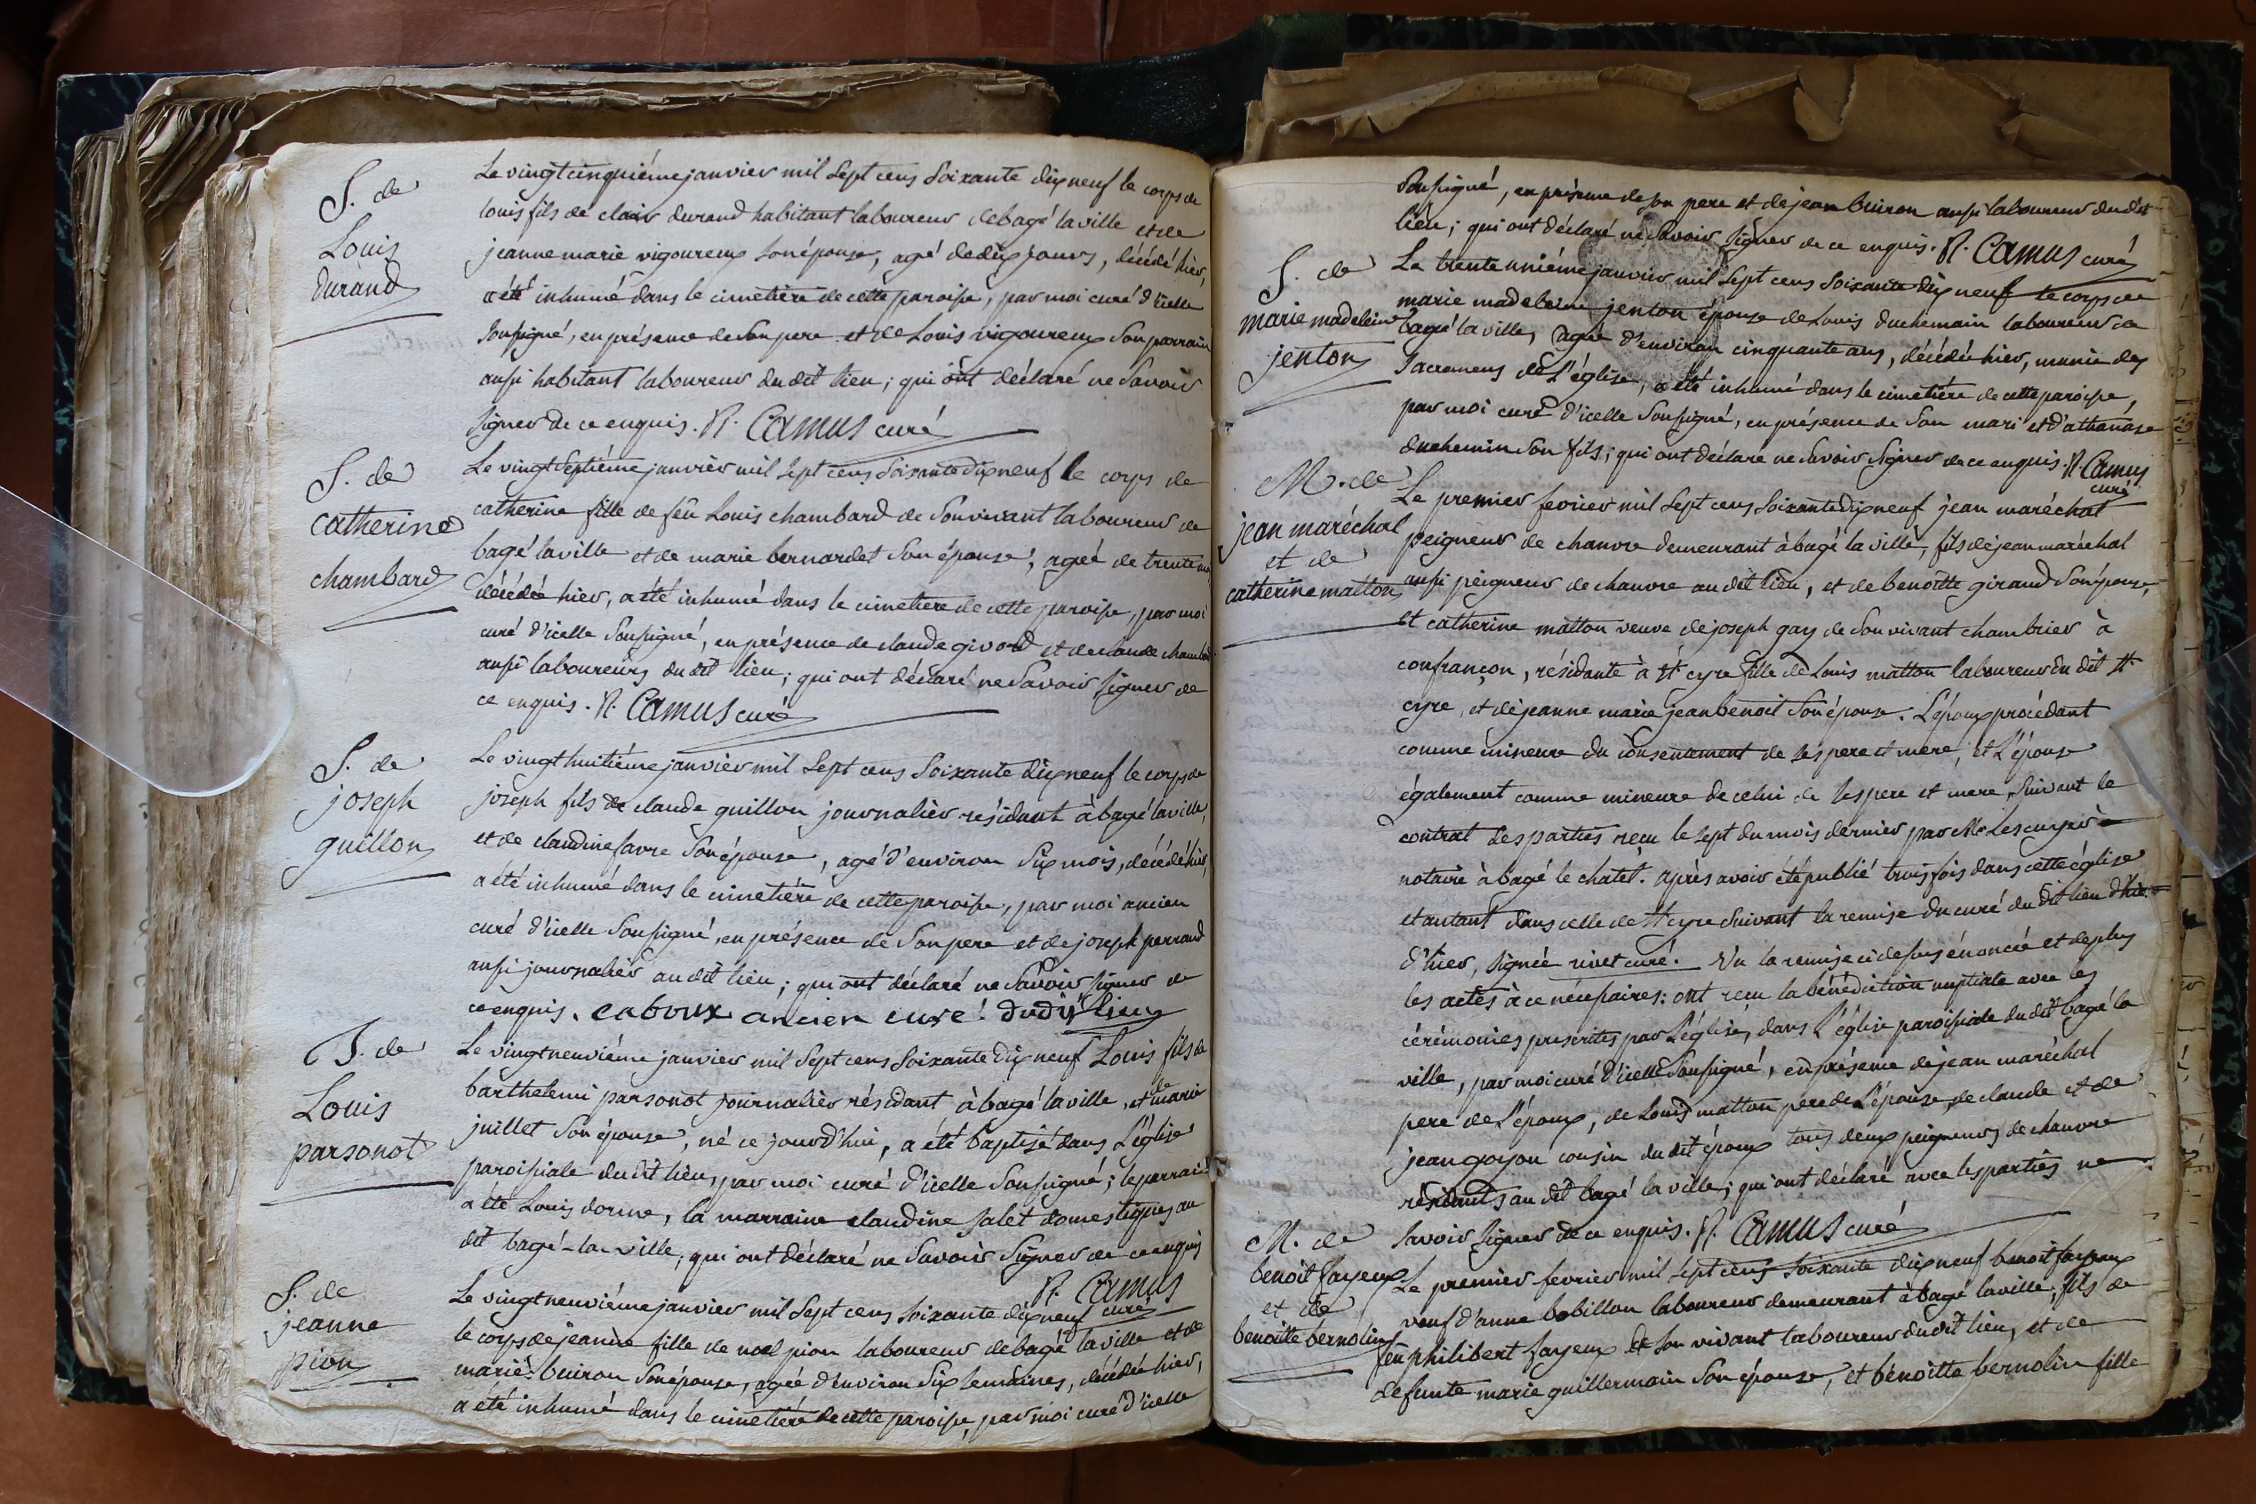 S. de
Louis
durand
Le vingt cinquiéme janvier mil sept cens soixante dix neuf le corps de
louis fils de clair durand habitant laboureur de bagé la ville et de
jeanne marie vigoureux son épouse, agé de dix jours, décédé hier,
a été inhumé dans le cimetière de cette paroisse, par moi curé d'icelle
soussigné, en présence de son pere et de Louis vigoureux son parrain
aussi habitant laboureur du dit lieu; qui ont déclaré ne savoir
signer de ce enquis. R. Camus curé
S. de
catherine
chambard
Le vingt septiéme janvier mil sept cens soixante dix neuf le corps de
catherine fille de feû Louis chambard de son vivant laboureur de
bagé la ville et de marie bernardet son épouse, agée de trente ans
décédée hier, a été inhumé dans le cimetiere de cette paroisse, par moi
curé d'icelle soussigné, en présence de claude givord et de claude chambard
aussi laboureurs du dit lieu; qui ont déclaré ne savoir signer de
ce enquis. R. Camus curé
S. de
joseph
guillon
Le vingt huitiéme janvier mil sept cens soixante dix neuf le corps de
joseph fils de claude guillon journalier résidant à bagé la ville,
et de claudine favre son épouse, agé d'environ six mois, décédé hier,
a été inhumé dans le cimetière de cette paroisse, par moi ancien
curé d'icelle soussigné, en présence de son pere et de joseph perraud
aussi journalier au dit lieu; qui ont déclaré ne savoir signer de
ce enquis. caboux ancien curé dudit lieu
B. de
Louis
parsonot
Le vingt neuviéme janvier mil sept cens soixante dix neuf Louis fils de
barthelemi parsonot journalier résidant à bagé la ville, et de marie
juillet son épouse, né ce jourd'hui, a été baptisé dans l'église
paroissiale du dit lieu, par moi curé d'icelle soussigné; le parrain
a été Louis dorme, la marraine claudine jalet domestiques au
dit bagé-la-ville, qui ont déclaré ne savoir signer de ce enquis
R. Camus
curé
S. de
jeanne
pion
Le vingt neuviéme janvier mil sept cens soixante dix neuf
le corps de jeanne fille de noel pion laboureur de bagé la ville et de
marie buiron son épouse, agée d'environ six semaines, décédée hier,
a été inhumé dans le cimetiére de cette paroisse, par moi curé d'icelle
soussigné, en présence de son pere et de jean buiron aussi laboureur du dit
lieu; qui ont déclaré ne savoir signer de ce enquis. R. Camus curé
S. de
marie madeleine
jenton
Le trente uniéme janvier mil sept cens soixante dix neuf le corps de
marie madeleine jenton épouse de Louis duchemain laboureur de
bagé la ville, agée d'environ cinquante ans, décédée hier, munie des
sacremens de l'église, a été inhumé dans le cimetière de cette paroisse,
par moi curé d'icelle soussigné, en présence de son mari et d'athanase
duchemin son fils; qui ont déclaré ne savoir signer de ce enquis. R. Camus
curé
M. de
jean maréchal
et de
catherine matton
Le premier fevrier mil sept cens soixante dix neuf jean maréchal
peigneur de chanvre demeurant à bagé la ville, fils de jean maréchal
aussi peigneur de chanvre au dit lieu, et de benoitte giraud son épouse,
et catherine matton veuve de joseph gay de son vivant chambrier à
confrançon, résidante à st cyre fille de Louis matton laboureur du dit st
cyre, et de jeanne marie jeanbenoit son épouse. L'époux procédant
comme mineure du consentement de ses pere et mere, et l'épouse
également comme mineure de celui de ses pere et mere, suivant le
contrat des parties recu le sept du mois dernier par Me Lescuyer
notaire à bagé le chatel. après avoir été publié trois fois dans cette église
et autant dans celle de st cyre suivant la remise du curé du dit lieu
d'hier, signée rivet curé. Vu la remise ci dessus énoncée et de plus
les actes à ce nécessaires: ont recu la bénédiction nuptiale avec les
cérémonies prescrites par l'église, dans l'église paroissiale du dit bagé la
ville, par moi curé d'icelle soussigné, en présence de jean maréchal
pere de l'époux, de Louis matton pere de l'épouse, de claude et de
jean goyon cousin du dit époux tous deux peigneurs de chanvre
résidants au dit bagé la ville; qui ont déclaré avec les parties ne
savoir signer de ce enquis. R. Camus curé
M. de
benoit fayeux
et de
benoitte bernolin
Le premier fevrier mil sept cens soixante dix neuf benoit fayeux
veuf d'anne bobillon laboureur demeurant à bagé la ville, fils de
feû philibert fayeux de son vivant laboureur du dit lieu, et de
defunte marie guillermain son épouse, et benoitte bernolin fille